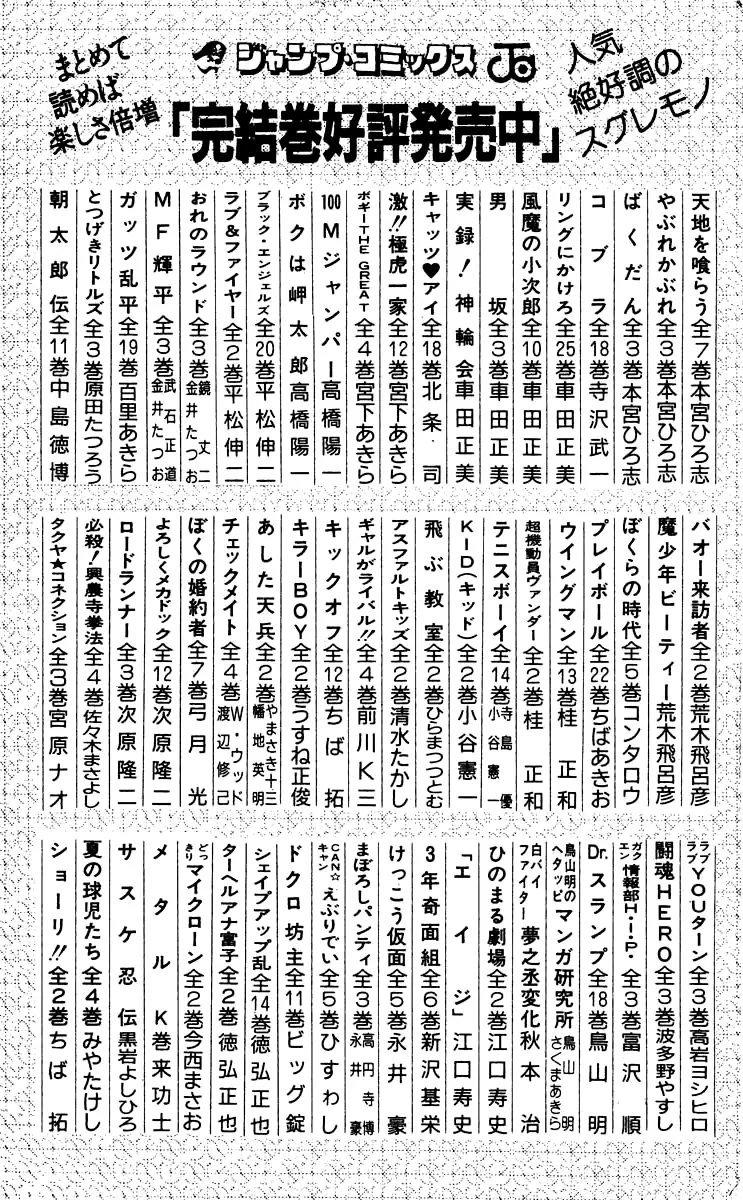 まとめて
読めば
楽しさ倍増
ジャンプ・コミックス
人気
絶好調の
スグレモノ
「完結巻好評発売中」
天地を喰らう 全7巻 本宮ひろ志
やぶれかぶれ 全3巻 本宮ひろ志
ばくだん 全3巻 本宮ひろ志
コブラ 全18巻 寺沢武一
リングにかけろ 全25巻 車田正美
風魔の小次郎 全10巻 車田正美
男坂 全3巻 車田正美
実録!神輪会 車田正美
キャッツ♥アイ 全18巻 北条司
激!!極虎一家 全12巻 宮下あきら
ボギーTHE GREAT 全4巻 宮下あきら
100Mジャンパー 高橋陽一
ボクは岬太郎 高橋陽一
ブラック・エンジェルズ 全20巻 平松伸二
ラブ&ファイヤー 全2巻 平松伸二
おれのラウンド 全3巻 鏡丈二 金井たつお
MF輝平 全3巻 武石正道 金井たつお
ガッツ乱平 全19巻 百里あきら
とつげきリトルズ 全3巻 原田たつろう
朝太郎伝 全11巻 中島徳博
バオー来訪者 全2巻 荒木飛呂彦
魔少年ビーティー 荒木飛呂彦
ぼくらの時代 全5巻 コンタロウ
プレイボール 全22巻 ちばあきお
ウイングマン 全13巻 桂正和
超機動員ヴァンダー 全2巻 桂正和
テニスボーイ 全14巻 寺島優 小谷憲一
KID(キッド) 全2巻 小谷憲一
飛ぶ教室 全2巻 ひらまつつとむ
アスファルトキッズ 全2巻 清水たかし
ギャルがライバル!! 全4巻 前川K三
キックオフ 全12巻 ちば拓
キラーBOY 全2巻 うすね正俊
あした天兵 全2巻 やまさき十三 幡地英明
チェックメイト 全4巻 W・ウッド 渡辺修己
ぼくの婚約者 全7巻 弓月光
よろしくメカドック 全12巻 次原隆二
ロードランナー 全3巻 次原隆二
必殺!興農寺拳法 全4巻 佐々木まさよし
タクヤ★コネクション 全3巻 宮原ナオ
ラブラブYOUターン 全3巻 高岩ヨシヒロ
闘魂HERO 全3巻 波多野やすし
ガクエン情報部H・I・P・ 全3巻 富沢順
Dr.スランプ 全18巻 鳥山明
鳥山明のヘタッピマンガ研究所 鳥山明 さくまあきら
白バイファイター夢之丞変化 秋本治
ひのまる劇場 全2巻 江口寿史
「エイジ」 江口寿史
3年奇面組 全6巻 新沢基栄
けっこう仮面 全5巻 永井豪
まぼろしパンティ 全3巻 高円寺博 永井豪
CAN☆キャンえぶりでい 全5巻 ひすわし
ドクロ坊主 全11巻 ビッグ錠
シェイプアップ乱 全14巻 徳弘正也
ターヘルアナ富子 全2巻 徳弘正也
どっきりマイクローン 全2巻 今西まさお
メタルK 巻来功士
サスケ忍伝 黒岩よしひろ
夏の球児たち 全4巻 みやたけし
ショーリ!! 全2巻 ちば拓